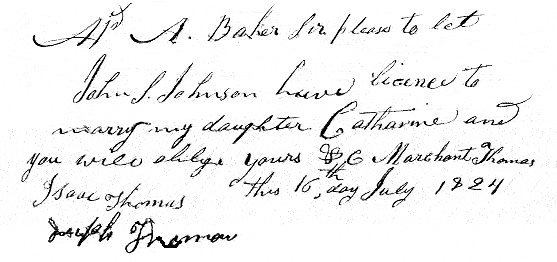 A. Baker Sir please to let
John S. Johnson have licence to
marry my daughter Catharine and
you will oblige yours &C Marchant Thomas
Isaac Thomas this 16th day July 1824
Joseph Thomas